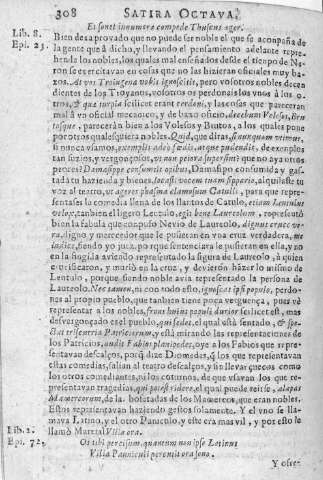 308 SATIRA OCTAVA.
Et sonet innumera compede Thuscus ager.
Lib. 8.
Epi. 23.
Bien desaprovado que no puede ser noble el que se acompaña de
la gente que à dicho, y llevando el pensamiento adelante repre-
hende los nobles, los quales mal enseñados desde el tiempo de Ne-
ron se exercitavan en cosas que no las hizieran oficiales muy ba-
xos. At vos Troiugena vobis ignoscitis, pero vosotros nobles decen
dientes de los Troyanos, vosotros os perdonais los unos à los o-
tros, & que turpia scilicet erant cerdoni, y las cosas que parecerian
mal à un oficial mecanico, y de baxo oficio, decebunt Volesos, Bru
tosque, parecerán bien a los Volesos y Brutos, a los quales pone
por otros qualesquiera nobles. Quid, que diras, si nunquam utimur,
si nunca usamos, exemplis adeò fœdis, atque pudendis, de exemplos
tan suzios, y vergonçosos, ut non peiora supersint? que no aya otros
peores? Damasippe consumtis opibus, Damasipo consumida y gas-
tada tu hazienda y bienes, locasti vocem tuam sipario, alquilaste tu
voz al teatro, ut ageres phasma clamosum Catulli, para que repre-
sentases la comedia llena de los llantos de Catulo, etiam Lentulus
velox, tambien el ligero Lentulo, egit bene Laureolum, representó
bien la fabula que compuso Nevio de Laureolo, dignus cruce ve-
ra, digno y merecedor que le pusieran en una cruz verdadera, me
iudice, siendo yo juez, porque sentenciara le pusieran en ella, y no
en la fingida aviendo representado la figura de Laureolo, à quien
crucificaron, y murió en la cruz, y devieron hazer lo mismo de
Lentulo, porque siendo noble avia representado la persona de
Laureolo. Nec tamen, ni con todo esto, ignoscas ipsi populo, perdo-
nes al propio pueblo, que tambien tiene poca verguença, pues vè
representar a los nobles, frons huius populi durior scilicet est, mas
desvergonçado es el pueblo, qui sedet, el qual està sentado, & spe-
ctat triscurria Patriciorum, y està mirando las representaciones de
los Patricios, audit Fabios planipedes, oye a los Fabios que repre-
sentavan descalços, porq dize Diomedes, q los que representavan
estas comedias, salian al teatro descalços, y sin llevar çuecos como
los otros comediantes, ni los coturnos, de que usavan los que re-
presentavan tragedias, qui potest ridere, el qual puede reir se, alapas
Mamercorum, de la bofetadas de los Mamercos, que eran nobles.
Estos representavan haziendo gestos solamente. Y el uno se lla-
mava Latino, y el otro Paniculo, y este era mas vil, y por esto le
llamó Marcial Vilia ora.
Lib. 2.
Epi. 72.
Os tibi percisum, quantum non ipse Latinus
Vilia Panniculi percutit ora sono.
Y ofre-